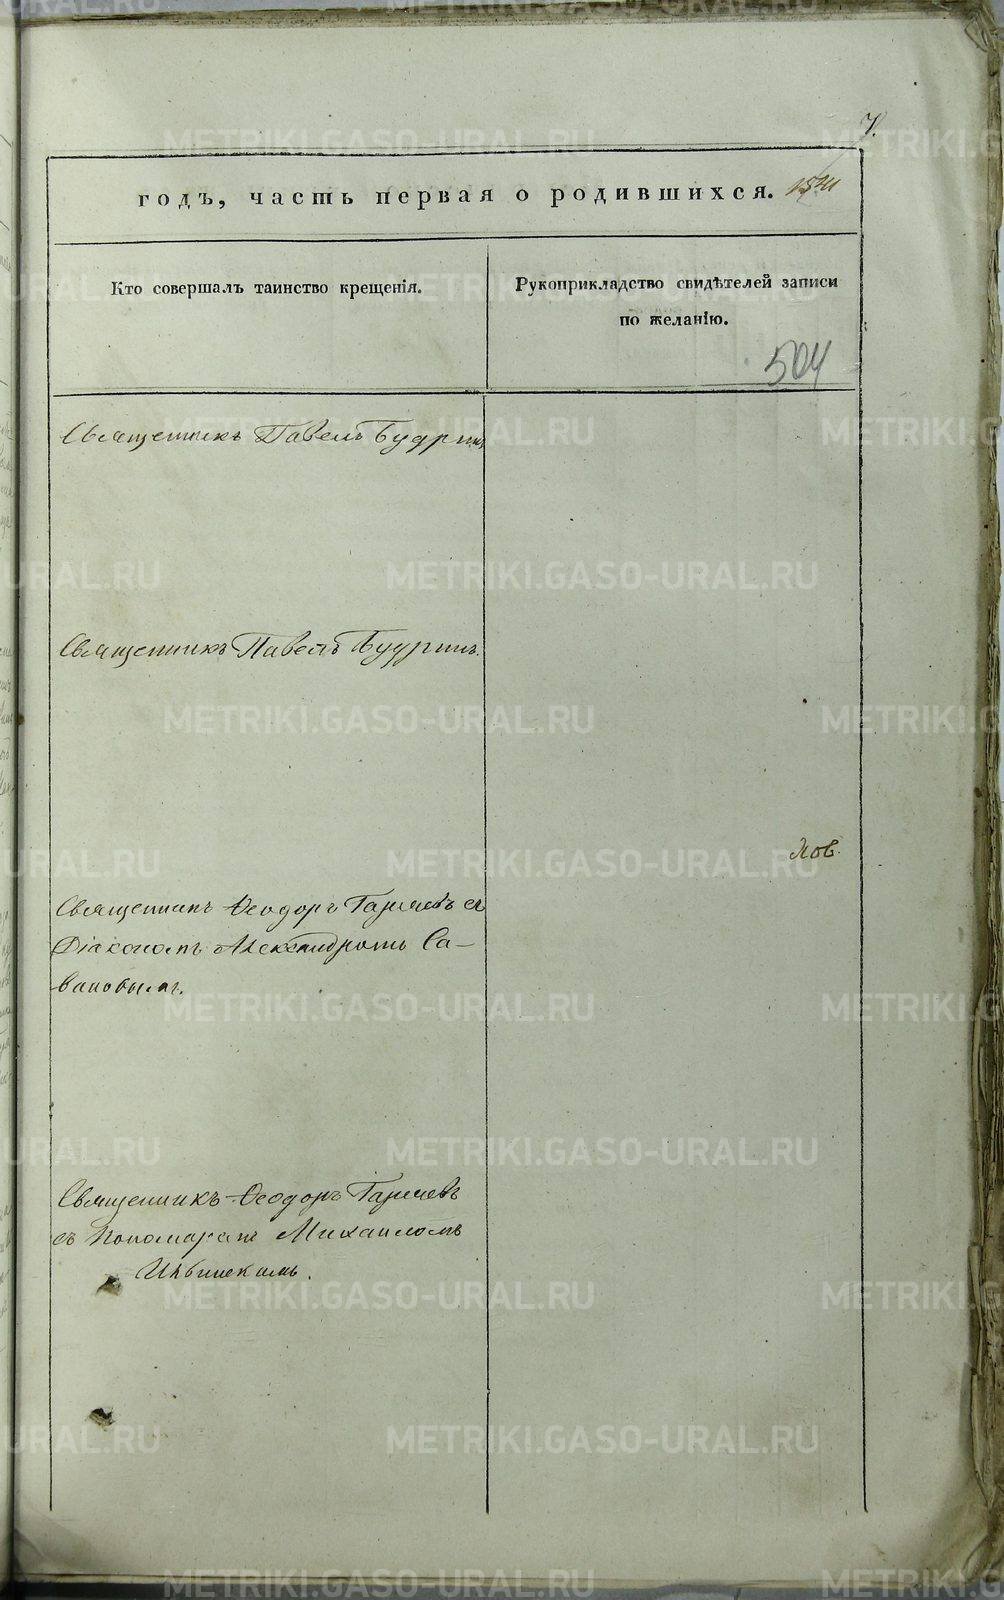 7.
годъ, часть первая о родившихся.
Кто совершалъ таинство крещенія.
Рукоприкладство свидѣтелей записи
по желанію.
504
Священникъ Павелъ Будринъ
Священникъ Павелъ Будринъ.
Священникъ Ѳеодоръ Гаряевъ съ
Діакономъ Александромъ Са-
Священникъ Ѳеодоръ Гаряевъ
съ Пономаремъ Михаиломъ
METRIKI.GASO-URAL.RU